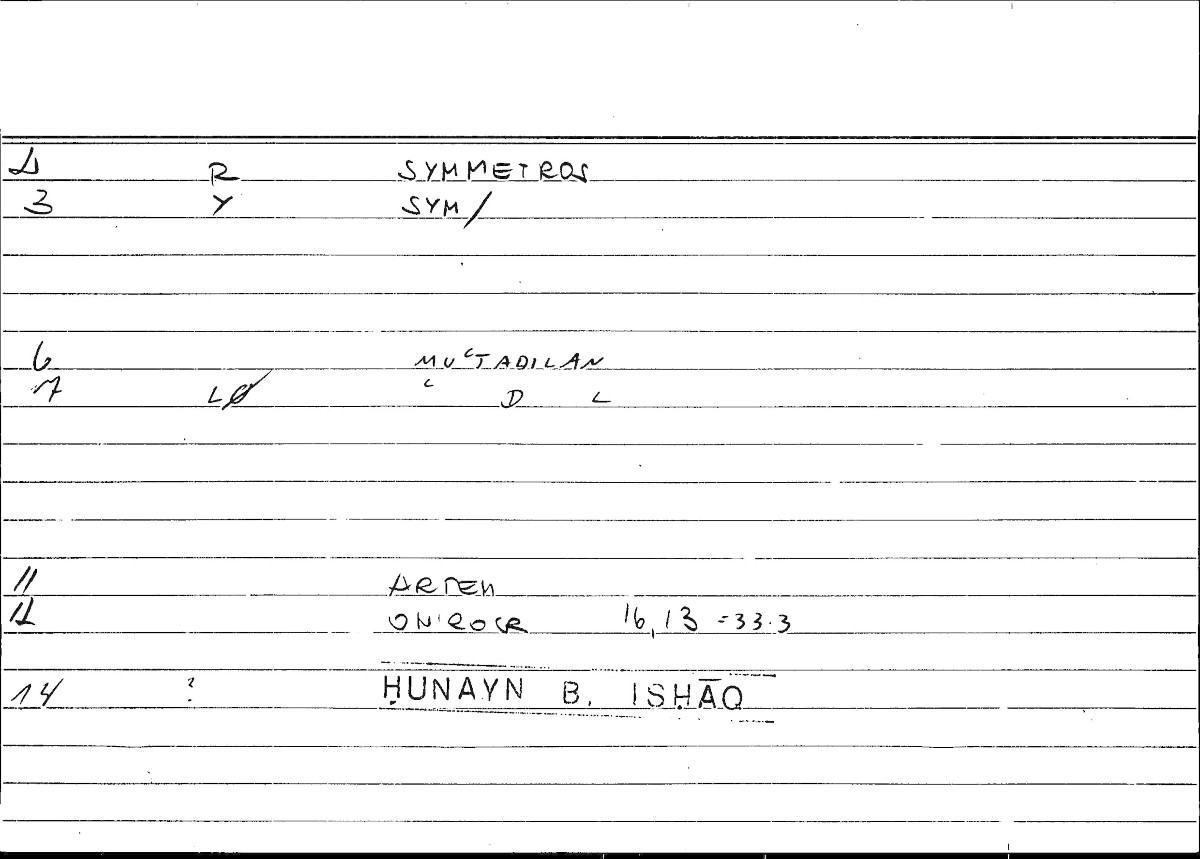 2 R SYMMETROS
3 Y SYM/
6 MUʿTADILAN
7 LØ ʿ D L
11 ARTEM
12 ONIROCR 16,13 =33.3
14 ? ḤUNAYN B. ISḤĀQ